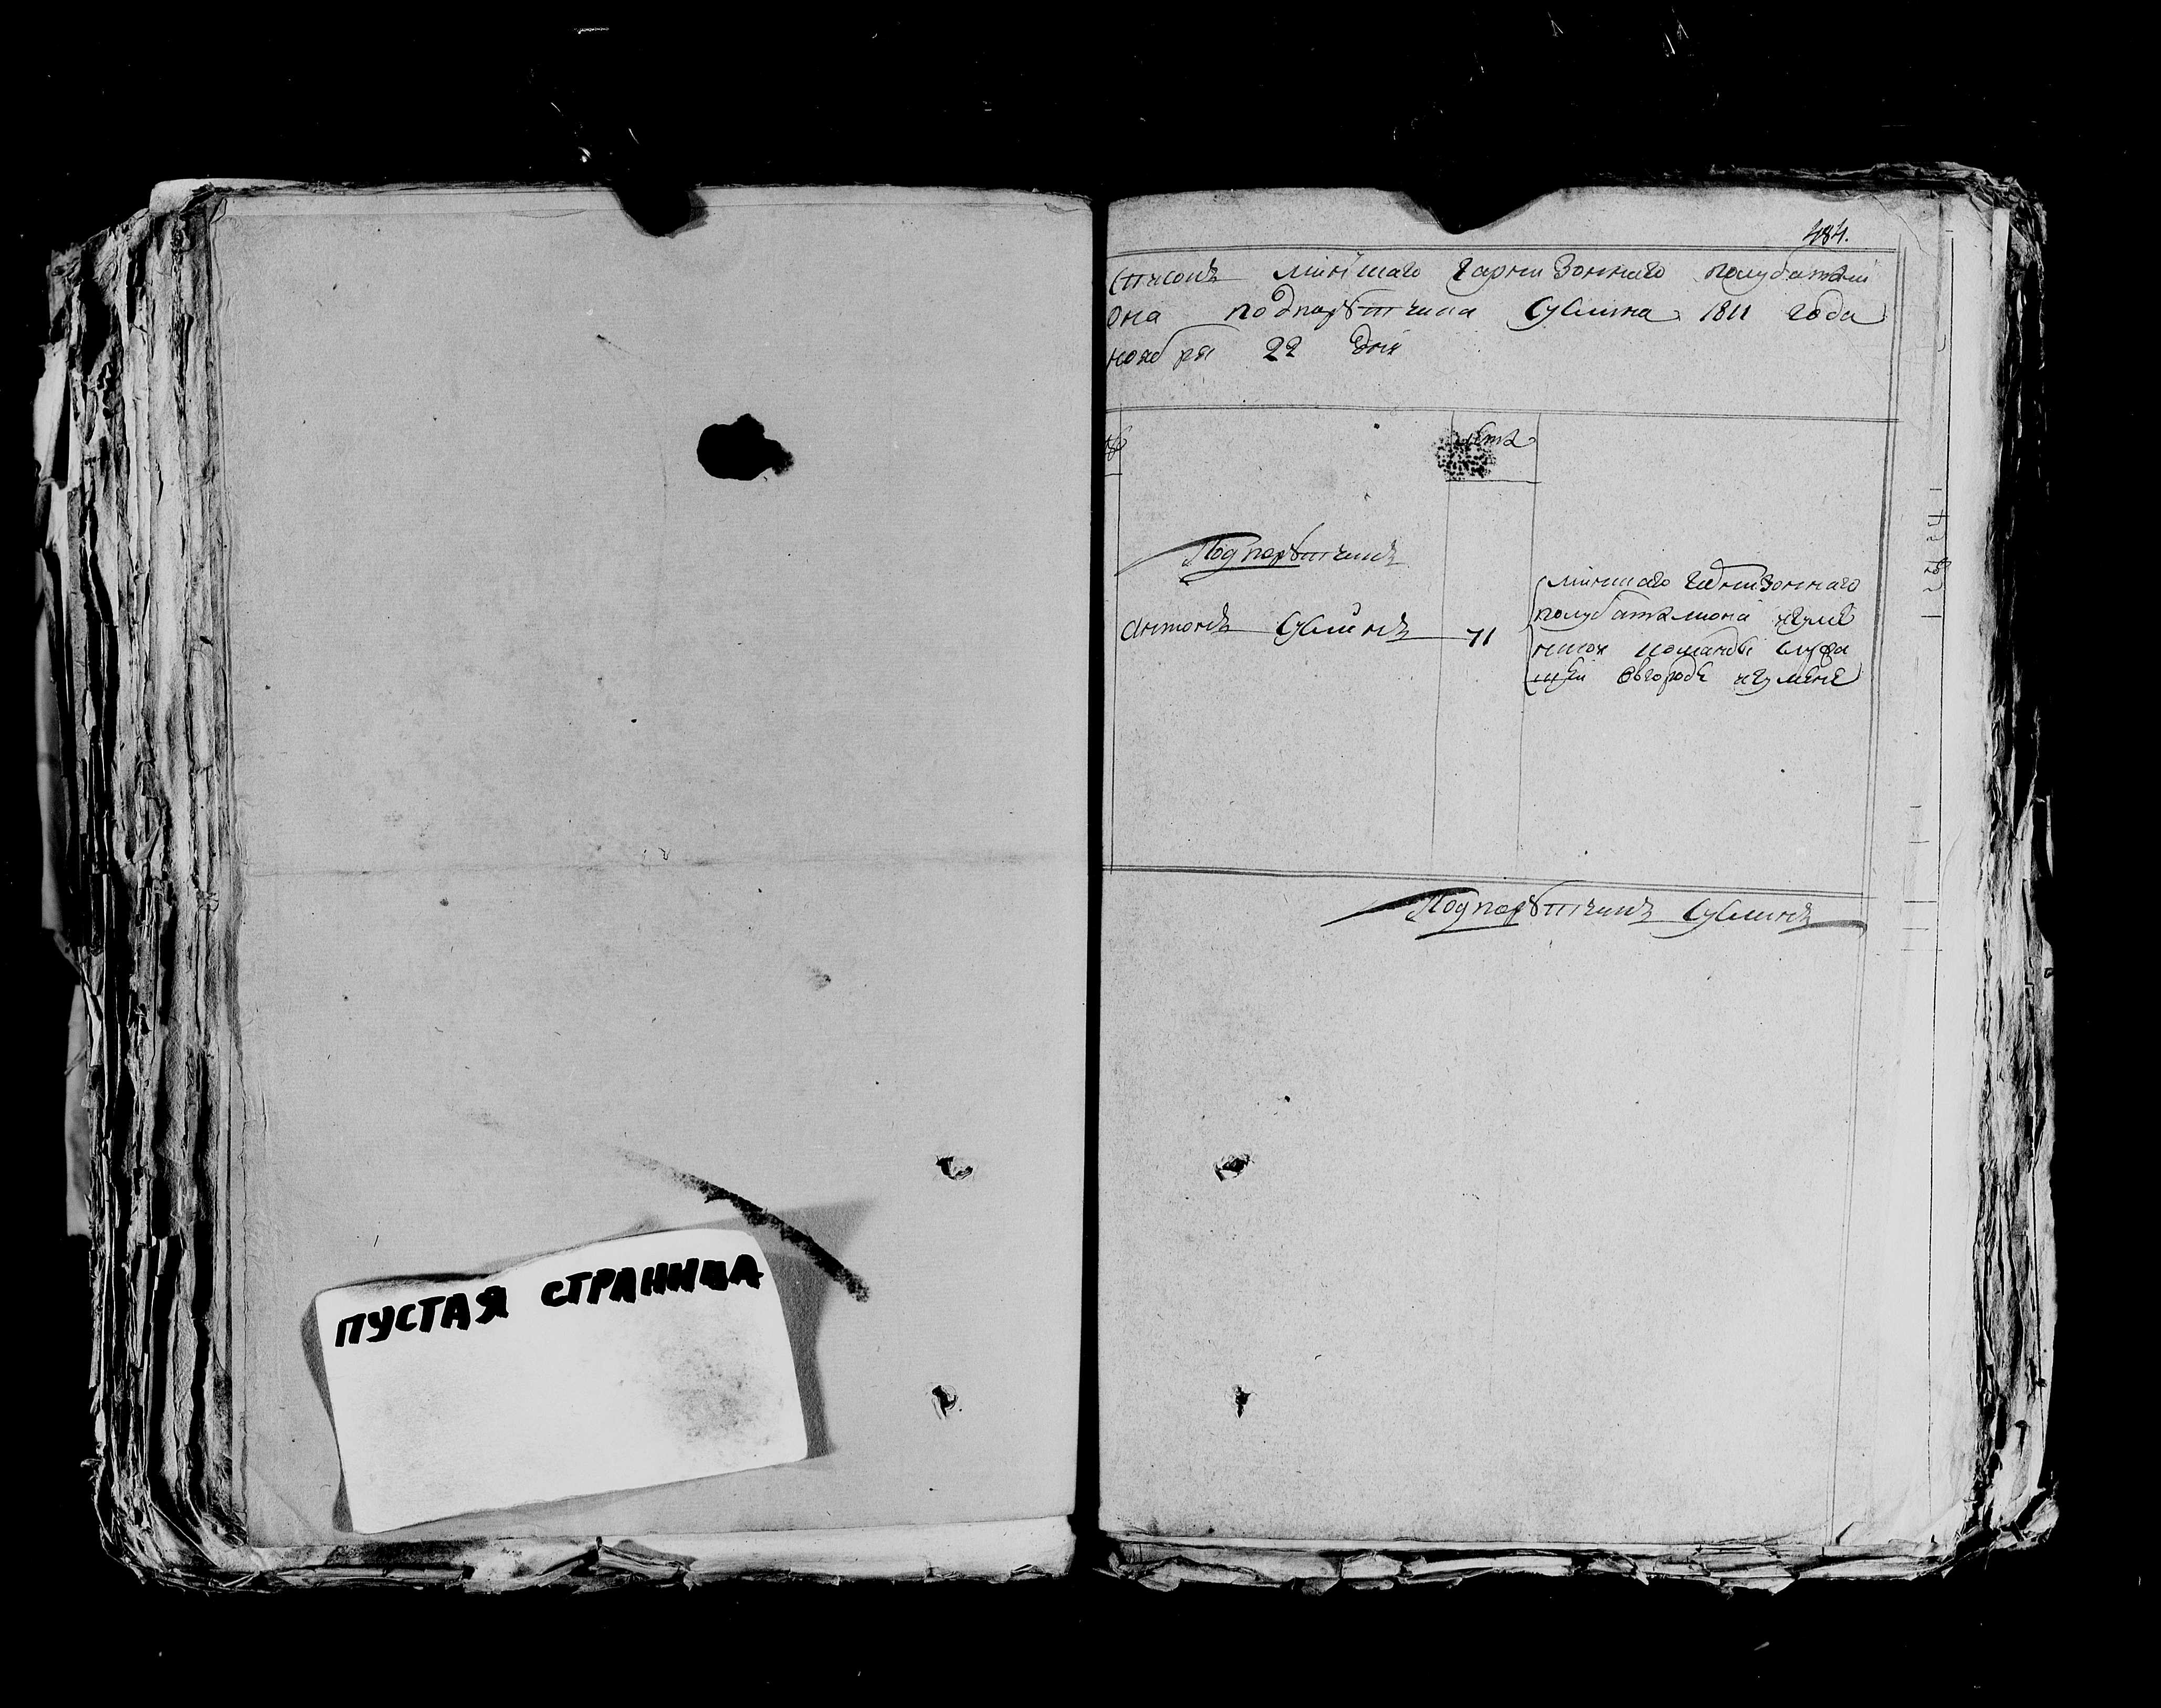 ПУСТАЯ СТРАНИЦА
484.
списокъ минскаго гарнизоннаго полубатали
она подпарутчика Сулина 1811 года
ноября 22 дня
лета
Подпарутчикъ
Антонъ Сулинъ 71
минскаго гарнизоннаго
полубаталиона игуме
нской команды служа
щей въ городе игумене
Подпарутчикъ Сулинъ